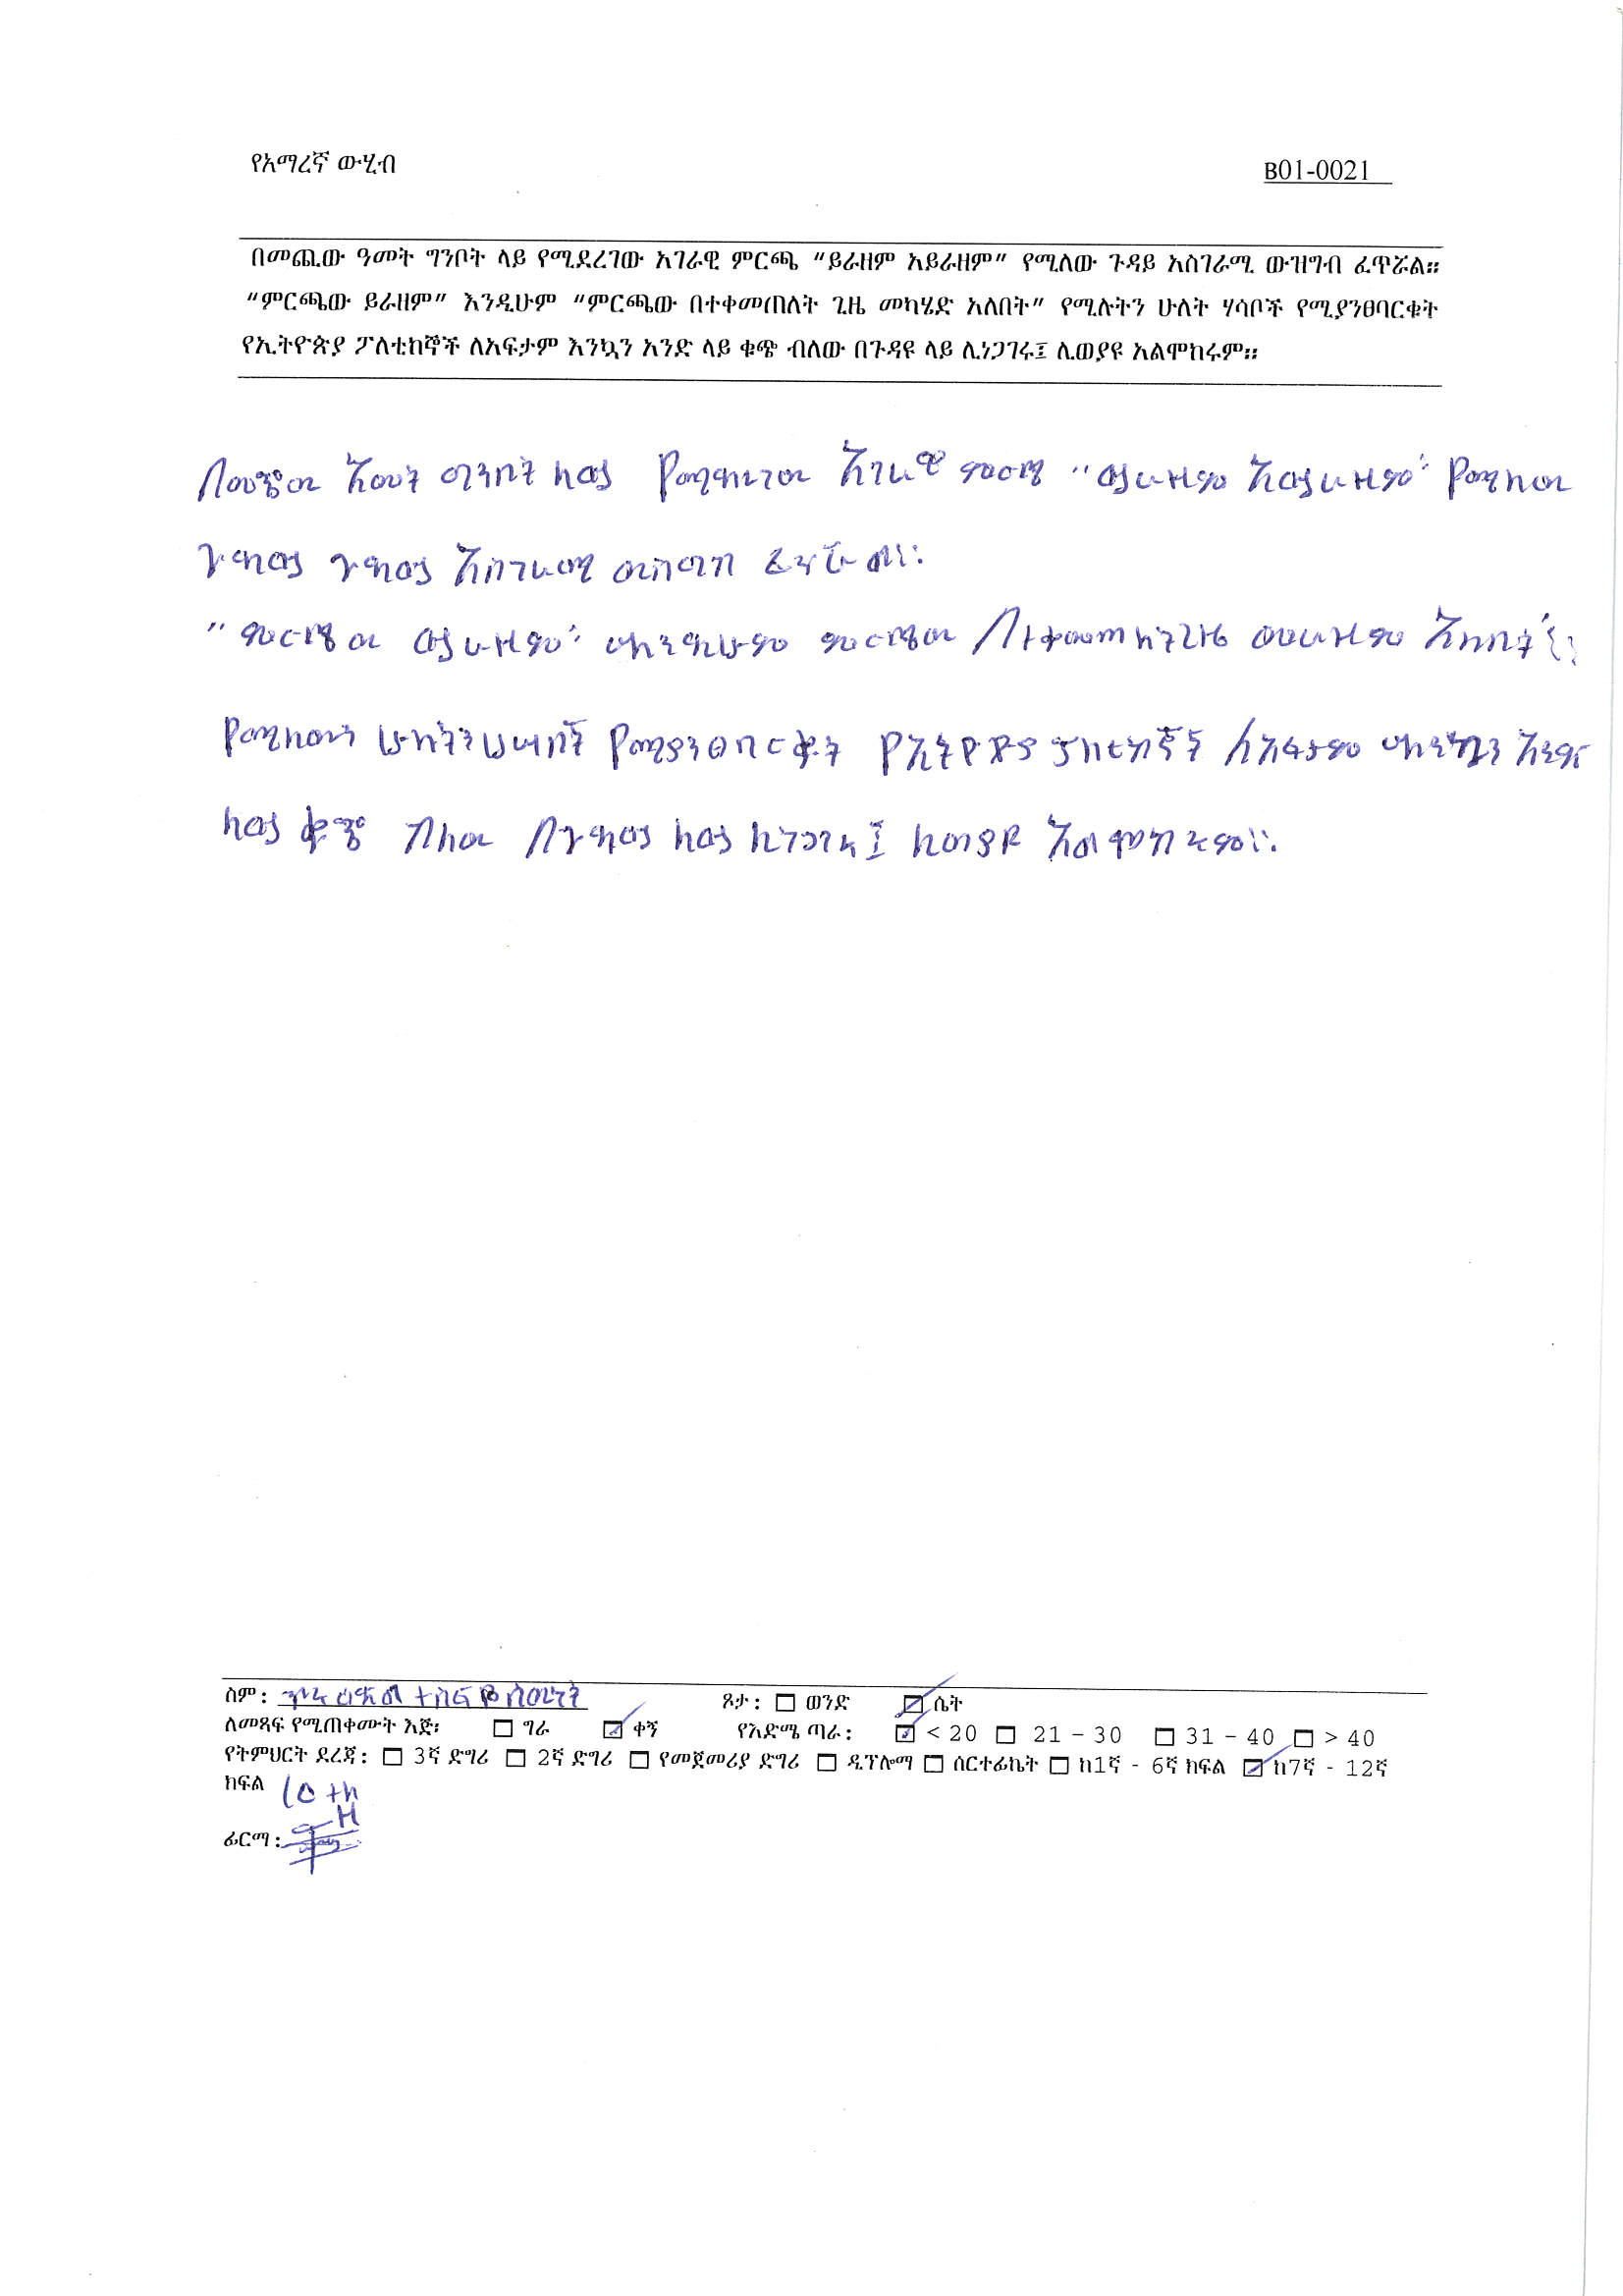 የአማረኛ ውሂብ
B01-0021
በመጪው ዓመት ግንቦት ላይ የሚደረገው አገራዊ ምርጫ “ይራዘም አይራዘም” የሚለው ጉዳይ አስገራሚ ውዝግብ ፈጥሯል፡፡
“ምርጫው ይራዘም” እንዲሁም “ምርጫው በተቀመጠለት ጊዜ መካሄድ አለበት” የሚሉትን ሁለት ሃሳቦች የሚያንፀባርቁት
የኢትዮጵያ ፖለቲከኞች ለአፍታም እንኳን አንድ ላይ ቁጭ ብለው በጉዳዩ ላይ ሊነጋገሩ፤ ሊወያዩ አልሞከሩም፡፡
በመጭው አመት ግንቦት ላይ የሚዳረገው አገራዊ ምርጫ “ይራዘም አይራዘም” የሚለው
ጉዳይ ጉዳይ አስገራሚ ውስግብ ፈጥሯል፡፡
“ምርጫው ይራዘም” እንዲሁም ምርጫው በተቀመጠለትጊዜ መራዘም አለበት”፡፡
የሚለውን ሁለትንሀሣቦች የሚያንፀባርቁት የኢትዮጵያ ፖለቲከኞች ለአፍታም እንኳን አንድ
ላይ ቁጭ ብለው በጉዳይ ላይ ሊነጋገሩ፤ ሊወያዩ አልሞከሩም፡፡
ስም: ተስፋዬ
ጾታ: ወንድ ሴት
ለመጻፍ የሚጠቀሙት እጅ፡ ግራ ቀኝ የእድሜ ጣራ: < 20 21 – 30 31 – 40 > 40
የትምህርት ደረጃ: 3ኛ ድግሪ 2ኛ ድግሪ የመጀመሪያ ድግሪ ዲፕሎማ ሰርተፊኬት ከ1ኛ - 6ኛ ክፍል ከ7ኛ - 12ኛ
ክፍል 10th
ፊርማ: